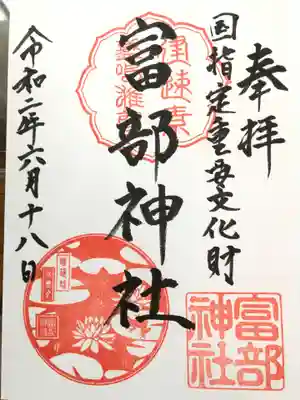 奉拝
国指定重要文化財
富部神社
令和二年六月十八日
富部
神社